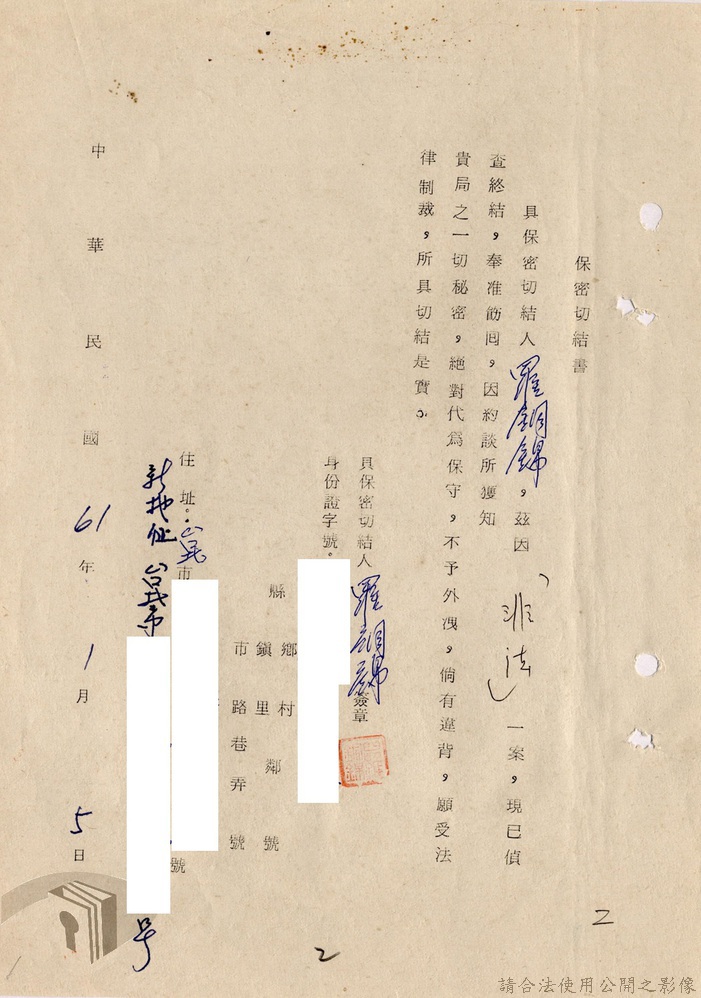 保密切結書
具保密切結人羅銅錦，茲因「非法」一案，現已偵
查終結，奉准飭囘，因約談所獲知
貴局之一切秘密，絕對代爲保守，不予外洩，倘有違背，願受法
律制裁，所具切結是實。
具保密切結人羅銅錦簽章
身份證字號：
縣鄉村鄰號
鎮里
市路巷弄號
住址：台北市號
新地址台北市号
中華民國61年1月5日
2
2
請合法使用公開之影像